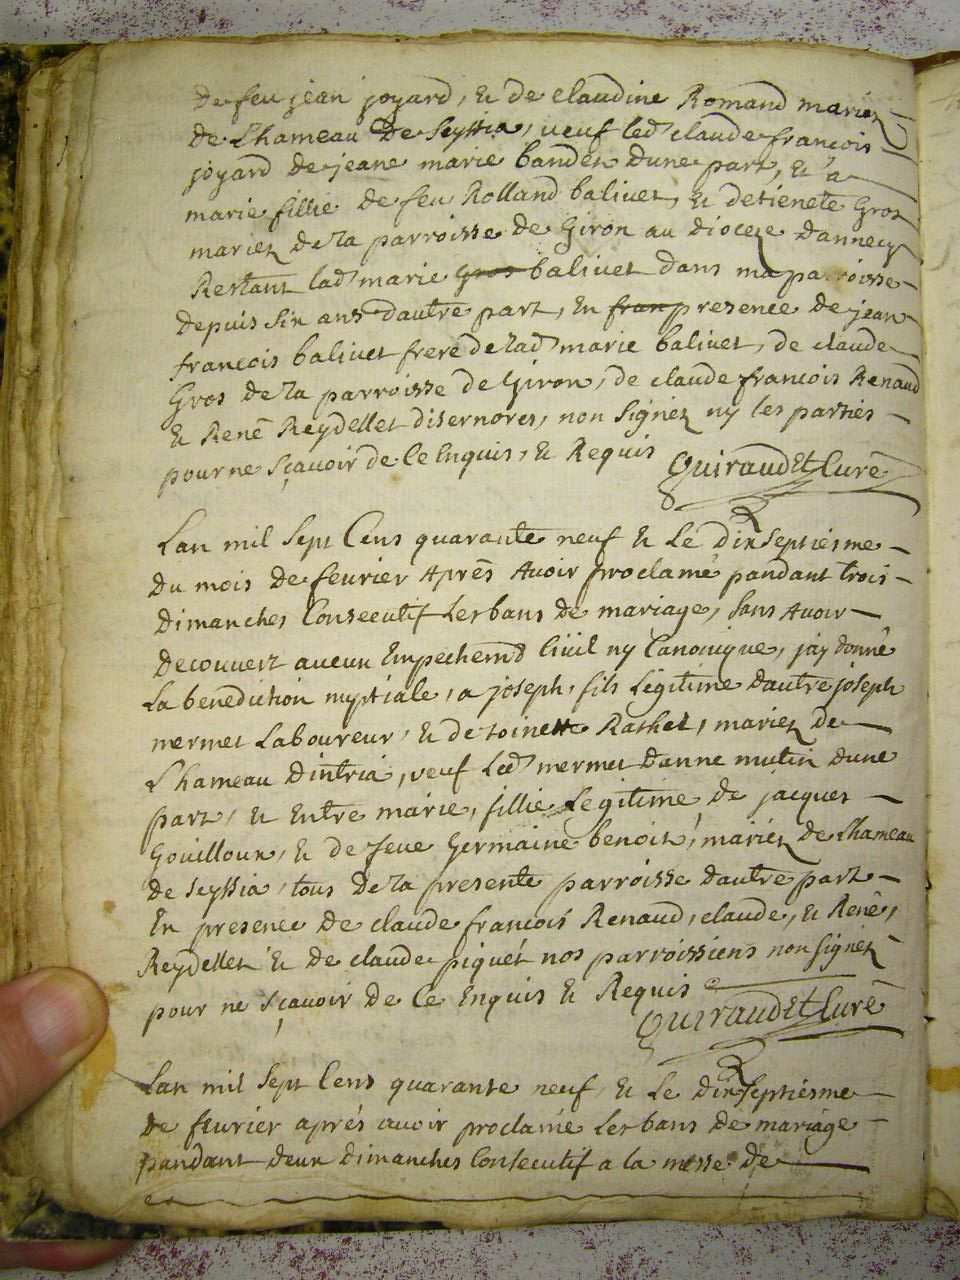 de feu jean joyard, et de claudine Romand mariez
de Lhameau de Seyssia, veuf led claude françois
joyard de jeane marie bandet dune part, et a
marie fillie de feu Rolland balivet, et detienete Gros
mariez de la parroisse de Giron au dioceze dannecy
Restant lad marie Gros balivet dans ma parroisse
depuis six ans dautre part, en fran presence de jean
françois balivet frere de lad marie balivet, de claude
Gros de la parroisse de Giron, de claude françois Renaud
et René Reydellet disernores, non signez ny les parties
pour ne sçavoir de ce enquis, et Requis Quiraudet Curé
Lan mil sept Cens quarante neuf et le dixseptiesme
du mois de fevrier Aprés Avoir proclamé pandant trois
dimanches Consecutif Les bans de mariage, sans Avoir
decouvert aucun Empechemd Civil ny Canonique, jay donné
La benediction nuptiale, a joseph, fils Légitime dautre joseph
mermet Laboureur, et de toinette Rathet, mariez de
Lhameau dintria, veuf Led mermet danne mutin dune
part, et Entre marie, fillie Legitime de jacques
Gouilloux, et de feue Germaine benoit, mariez de Lhameau
de Seyssia, tous de la presente parroisse dautre part
En presence de claude françois Renaud, claude, et René,
Reydellet et de claude piquet nos parroissiens non signez
pour ne sçavoir de Ce Enquis et Requis
Quiraudet Curé
Lan mil sept Cens quarante neuf, et Le dixseptiésme
de fevrier aprés avoir proclamé Les bans de mariage
pandant deux dimanches Consecutif a la messe de